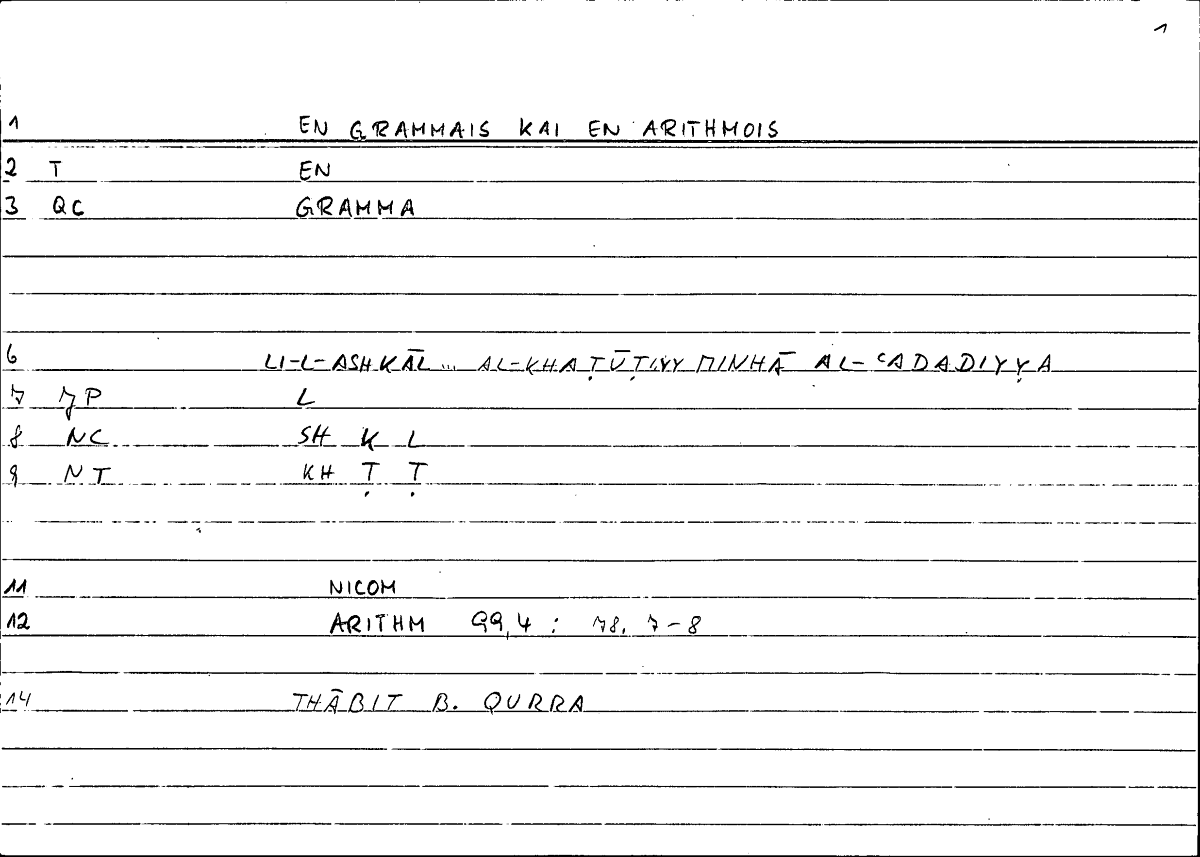 1
1 EN GRAMMAIS KAI EN ARITHMOIS
2 T EN
3 QC GRAMMA
6 LI-L-ASHKĀL... AL-KHAṬŪṬIYY MINHĀ AL-ʿADADIYỴA
7 JP L
8 NC SH K L
9 NT KH Ṭ Ṭ
11 NICOM
12 ARITHM 99,4 : 78, 7-8
14 THĀBIT B. QURRA